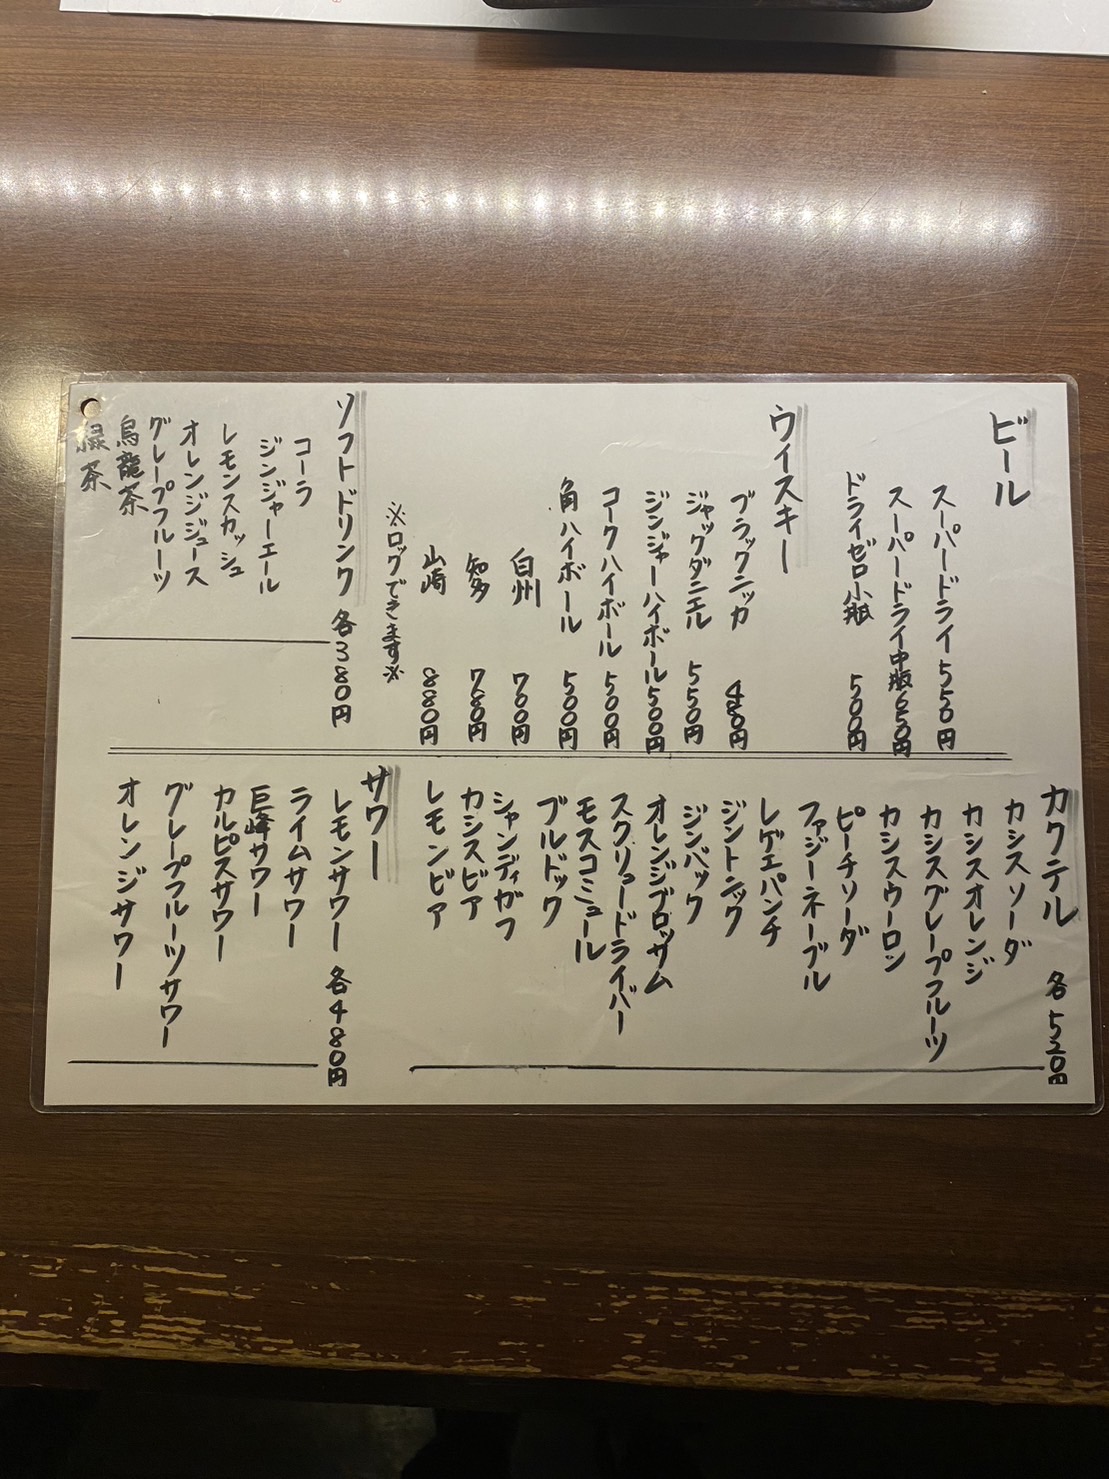 ビール
スーパードライ 550円
スーパードライ中瓶 650円
ドライゼロ小瓶 500円
ウイスキー
ブラックニッカ 480円
ジャックダニエル 550円
ジンジャーハイボール 500円
コークハイボール 500円
角ハイボール 500円
白州 700円
知多 780円
山崎 880円
※ロックできます※
ソフトドリンク 各380円
コーラ
ジンジャーエール
レモンスカッシュ
オレンジジュース
グレープフルーツ
烏龍茶
緑茶
カクテル 各520円
カシスソーダ
カシスオレンジ
カシスグレープフルーツ
カシスウーロン
ピーチソーダ
ファジーネーブル
レゲエパンチ
ジントニック
ジンバック
オレンジブロッサム
スクリュードライバー
モスコミュール
ブルドック
シャンディガフ
カシスビア
レモンビア
サワー
レモンサワー 各480円
ライムサワー
巨峰サワー
カルピスサワー
グレープフルーツサワー
オレンジサワー